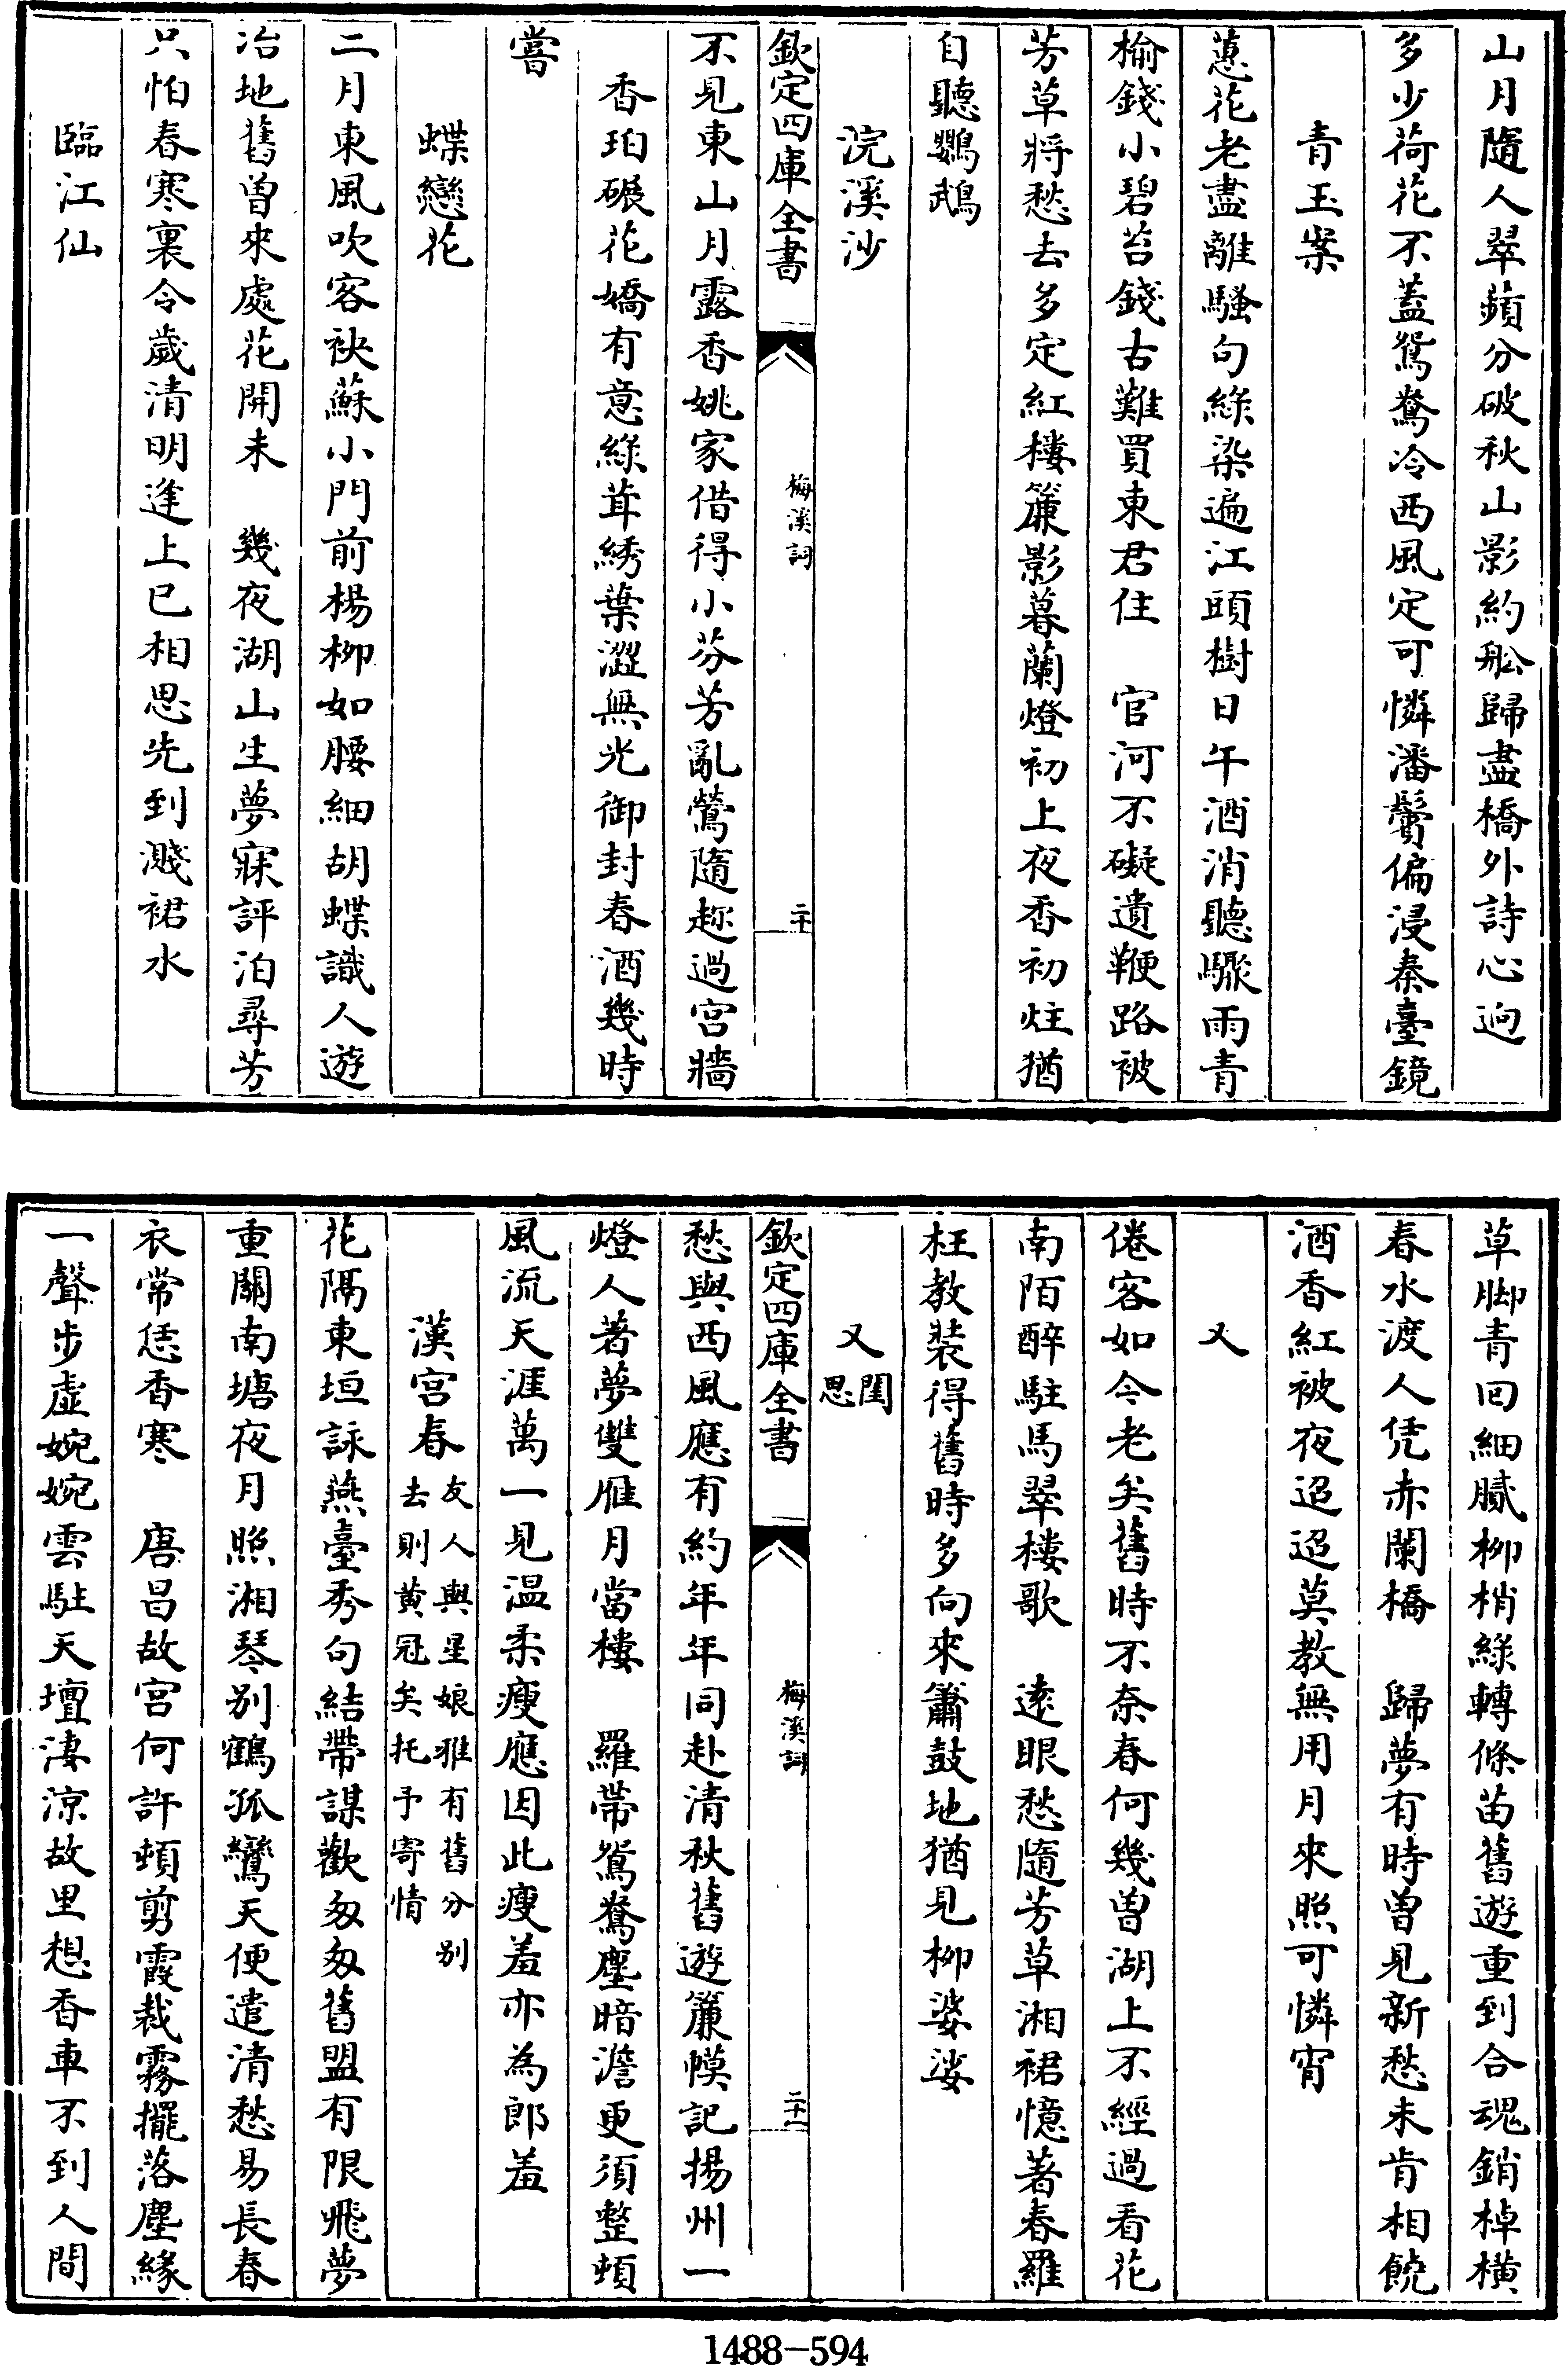 山月隨人翠蘋分破秋山影約船歸盡橋外詩心逈
多少荷花不蓋鴛鴦冷西風定可憐潘鬢偏浸秦臺鏡
青玉案
蕙花老盡離騷句綠染遍江頭樹日午酒消聽驟雨青
榆錢小碧苔錢古難買東君住　官河不礙遺鞭路被
芳草將愁去多定紅樓簾影暮蘭燈初上夜香初炷猶
自聽鸚鵡
浣溪沙
欽定四庫全書
梅溪詞
二十
不見東山月露香姚家借得小芬芳亂鶯隨趂過宮牆
香珀碾花嬌有意綠茸綉葉澀無光御封春酒幾時
嘗
蝶戀花
二月東風吹客袂蘇小門前楊柳如腰細胡蝶識人遊
冶地舊曾來處花開未　幾夜湖山生夢寐評泊尋芳
只怕春寒裏今歲清明逢上已相思先到濺裙水
臨江仙
草脚青回細膩柳梢綠轉條苗舊遊重到合魂銷棹橫
春水渡人凭赤闌橋　歸夢有時曾見新愁未肯相饒
酒香紅被夜迢迢莫教無用月來照可憐宵
又
倦客如今老矣舊時不奈春何幾曾湖上不經過看花
南陌醉駐馬翠樓歌　遠眼愁隨芳草湘裙憶著春羅
枉教裝得舊時多向來簫鼓地猶見柳婆娑
又閨思
欽定四庫全書
梅溪詞
二十一
愁與西風應有約年年同赴清秋舊遊簾幙記揚州一
燈人著夢雙雁月當樓　羅帶鴛鴦塵暗澹更須整頓
風流天涯萬一見温柔瘦應因此瘦羞亦為郎羞
漢宮春友人與星娘雅有舊分别去則黄冠矣托予寄情
花隔東垣詠燕臺秀句結帶謀歡匆匆舊盟有限飛夢
重關南塘夜月照湘琴别鶴孤鸞天便遣清愁易長春
衣常恁香寒　唐昌故宮何許頓剪霞裁霧擺落塵緣
一聲步虛婉婉雲駐天壇淒涼故里想香車不到人間
1488-594